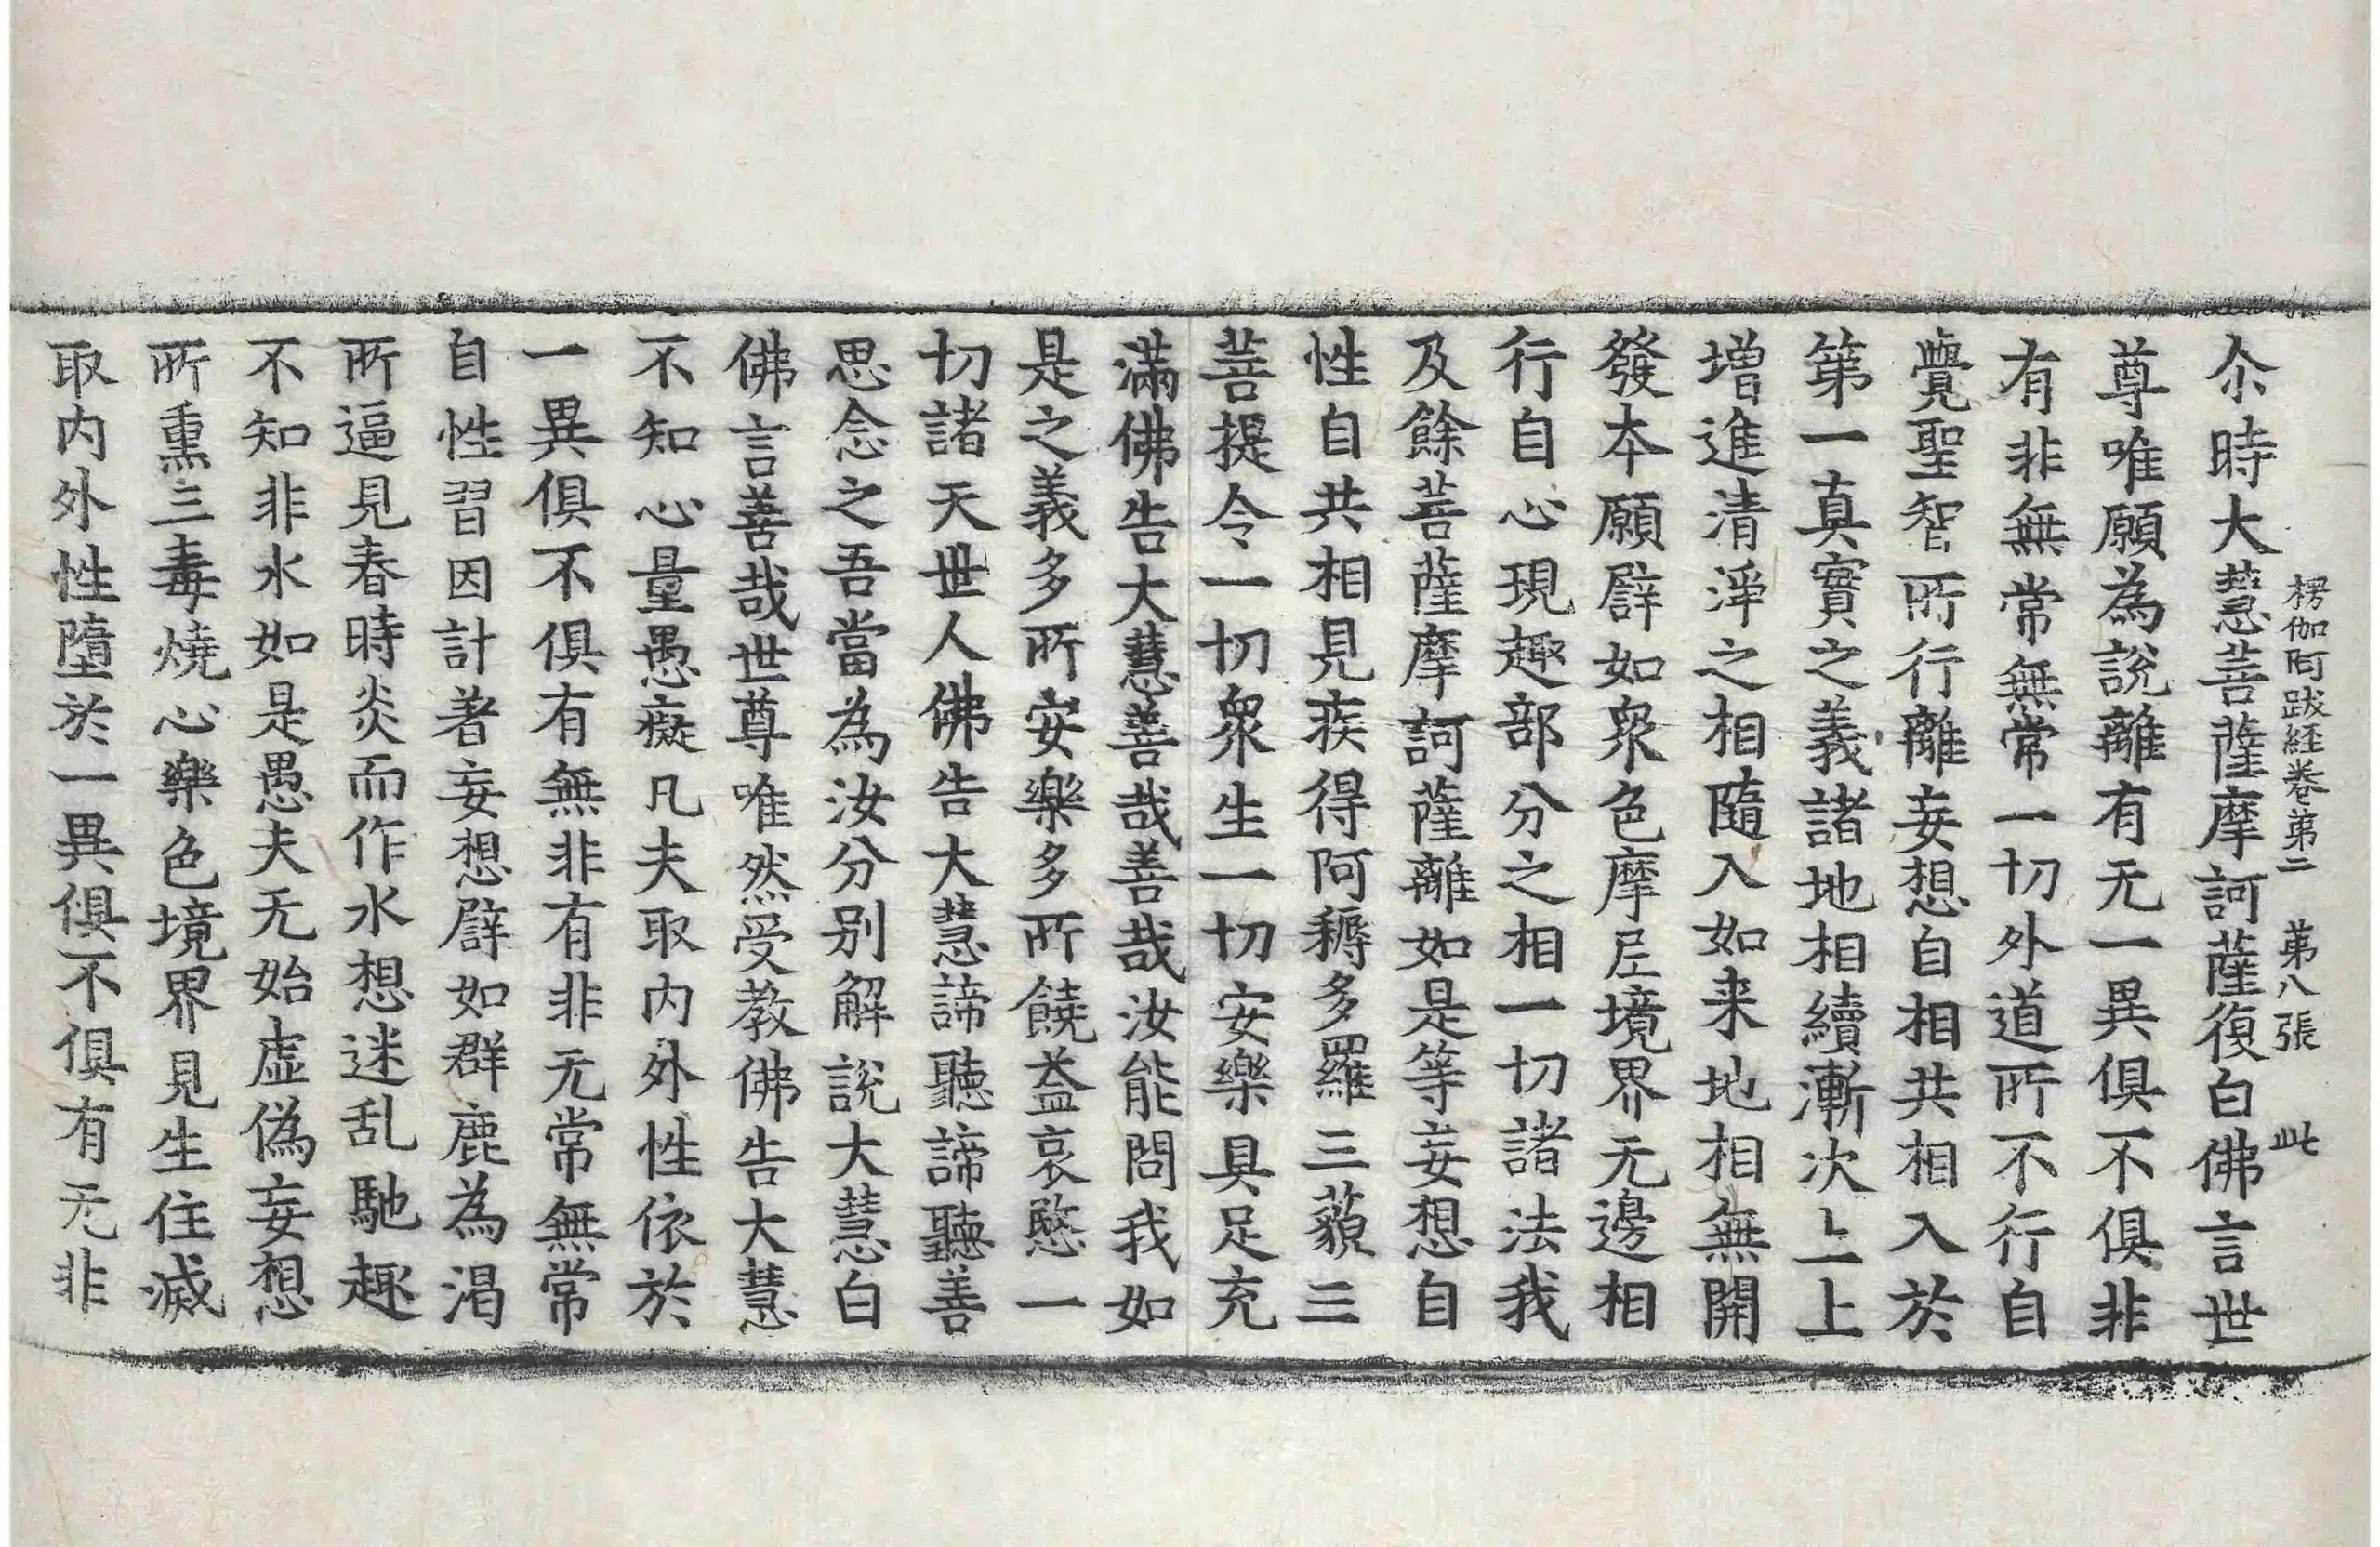 楞伽阿跋経卷第二　第八張　此
尒時大慧菩薩摩訶薩復白佛言世
尊唯願為說離有无一異俱不俱非
有非無常無常一切外道所不行自
覺聖智所行離妄想自相共相入於
第一真實之義諸地相續漸次上上
增進清淨之相隨入如来地相無開
發本願譬如衆色摩尼境界无邊相
行自心現趣部分之相一切諸法我
及餘菩薩摩訶薩離如是等妄想自
性自共相見疾得阿耨多羅三藐三
菩提令一切衆生一切安樂具足充
滿佛告大慧善哉善哉汝能問我如
是之義多所安樂多所饒益哀愍一
切諸天世人佛告大慧諦聽諦聽善
思念之吾當為汝分別解說大慧白
佛言善哉世尊唯然受教佛告大慧
不知心量愚癡凡夫取内外性依於
一異俱不俱有無非有非无常無常
自性習因計著妄想譬如群鹿為渴
所逼見春時炎而作水想迷乱馳趣
不知非水如是愚夫无始虛偽妄想
所熏三毒燒心樂色境界見生住滅
取内外性墮於一異俱不俱有无非